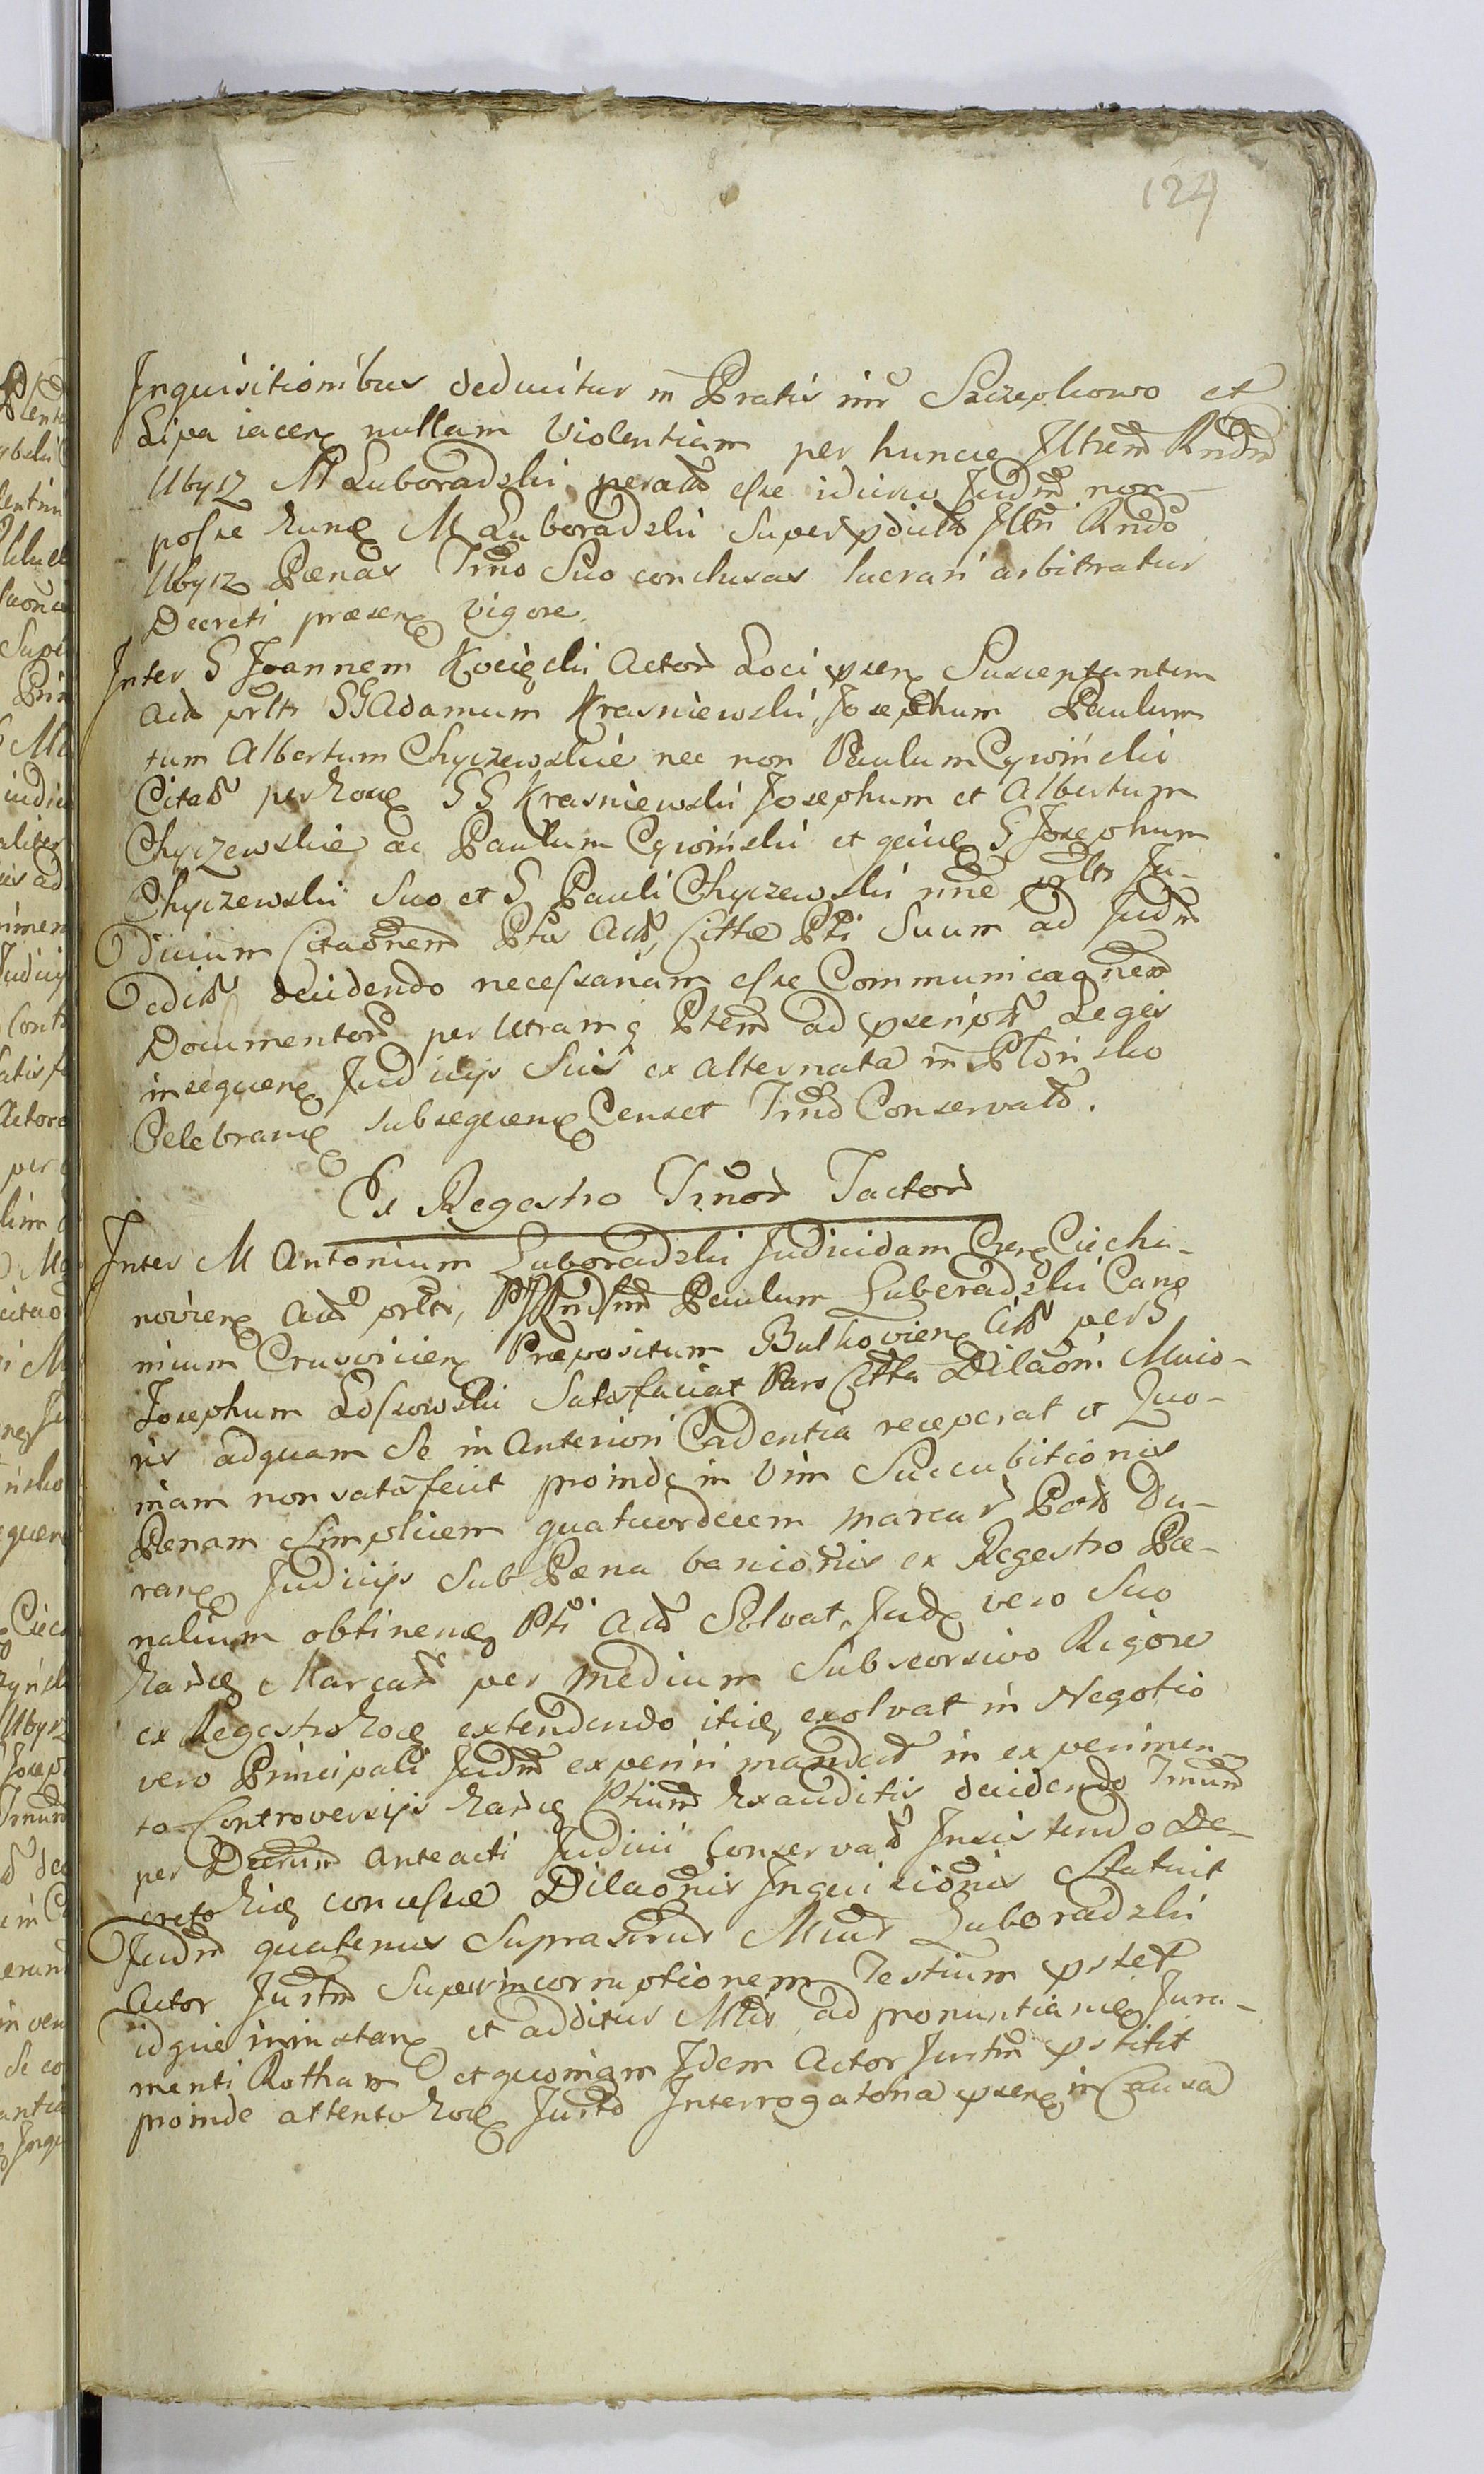 124
Inquisitionibus deducitur in Pratis inr Szczepkowo et
Lipa iacen nullam Violentiam per huncce Illrem Rndm
Ubysz M Luboradzki peratm esse idcirco Judm non
posse hunc M Luboradzki super pdicto Illri Rndo
Ubysz Pœnas Trno Suo conclusas lucrari arbitratur
Decreti præsen vigore.
Inter G Joannem Kocięcki Actor Loci psen Susceptantem
Actm prltr GG Adamum Krasniewski, Josephum Paulum
tum Albertum Chyczewskie nec non Paulum Cywiński
Citat per hocce GG Krasniewski Josephum et Albertum
Chyczewskie ac Paulum Cywiński et G Josephum
Chyczewski Suo et G Pauli Chyczewski nne prltr Ju-
dicium Citaonem Ptis Act, Cittæ Pti Suum ad Judm
edit decidendo necessariam esse Communicaonem
Documentor per Utramq Ptem ad pscript Legis
insequen Judicijs Suis ex alternata in Płońsko
Celebran subsequen Censet Trno Conservato.
Ex Regestro Trnor Tactor
Inter M Antonium Luboradzki Judicidam Cren Ciecha-
novien Act prltr, Paulum Luberadzki Cano
nicum Crusvicien Præpositum Bulkovien Citt per G
Josephum Lossowski Satisfaciat Pars Citta Dilaoni Maio-
ris adquam Se in Anteriori Cadentia receperat et Quo-
niam non satisfecit proinde in Vim Succubitionis
Pœnam Simplicem quatuordecem marcar Pod Du-
ran Judicijs Sub Pœna banionis ex Regestro Pœ-
nalium obtinen Pti Act Solvat, Jud vero Suo
hance Marcar per medium Subscorsivo Rigore
ex Regestro hocce extendendo itide exolvat in Negotio
vero Principali Judm experiri mandat in experimen-
to Controversijs hance Ptium Exauditis decidendo Trnum
per Decrum anteacti Judicii Conservat Insistendo De-
creto hicce concessæ Dilaonis Inquisionis Statuit
Judm quatenus Suprascrus Mcus Luboradzki
Actor Jurm Super incorruptionem Testium pstet
idque ininstan et additur Mlis ad pronuntian Jura-
menti Rotham et quoniam Idem Actor Jurtm pstitit
proinde attento hocce Jurto Interrogatoria psen in Causa